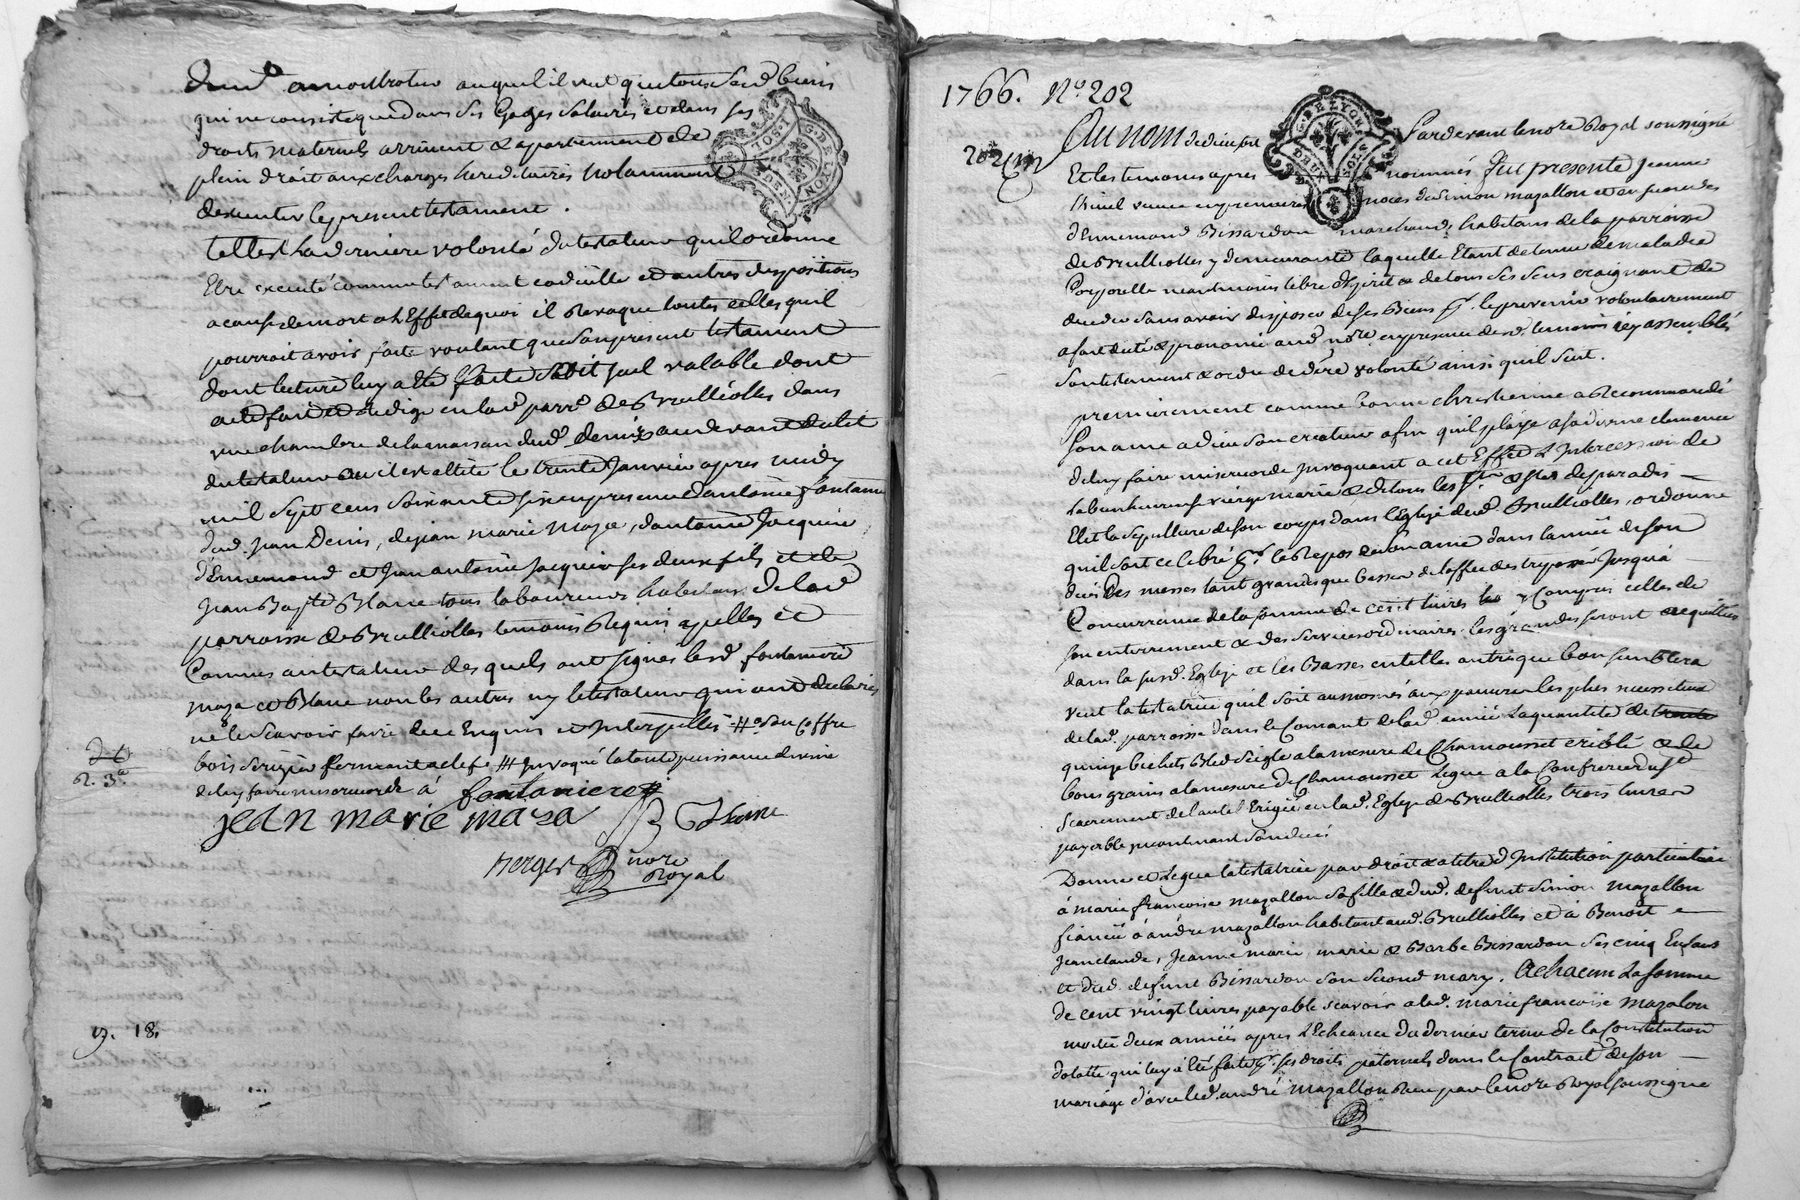 qui ne consiste que dans ses Gages Salaires et dans ses
droits maternels arrivent & apartiennent de
plein droit aux charges hereditaires notamment
dexecuter le present testament.
telle est sa derniere volonté du testateur quil ordonne
Etre executé comme testament codicille et autres dispositions
a cause de mort a lEffet de quoi il Revoque toutes celles quil
pourroit avoir faite voulant que son present testament
dont lecture luy a été faite soit seul valable dont
acte fait et redigé en lad. parr.e de Brulliolles dans
une chambre de la maison dud. denis au devant du lit
du testateur ou il est allité le trente Janvier apres midy
mil sept cens soixante six en presence dantoine fontaniere
dud. Jean Denis, de jean marie Maza, dantoine Jacquier
d'Ennemond et Jean antoine Jacquier ses deux fils et de
Jean Bapte Blanc tous laboureurs habitans de lad.
parroisse de Brulliolles temoins Requis apellés et
Connus au testateur des quels ont signés lesd. fontaniere
maza et Blanc non les autres ny le testateur qui ont declarés
ne le scavoir faire de ce Enquis et Interpellés # # un coffre
bois serizier fermant a clef /// Invoqué la toute puissance divine
de luy faire misericorde à fontaniere
R. 3.
jean marie maza JB Blanc
Berger nore
Royal
18.
1766. No. 202
G. DE LYON
DEUX SOLS
Au nom de dieu soit Pardevant le nore Royal soussigné
Et les temoins apres nommés fut presente Jeanne
veuve en premieres noces de Simon mazallon et en secondes
d'Ennemond Bissardon marchands habitans de la parroisse
de Brulliolles y demeurante laquelle Etant detenue de maladie
Corporelle neantmoins libre dEsprit & de tous ses sens craignant de
deceder sans avoir disposer de ses Biens pr. le prevenir volontairement
a fait dicté & prononcé aud. nore en presence desd. temoins icy assemblés
son testament & ordre de dere volonté ainsi quil suit.
premierement comme bonne chrestienne a Recommandé
son ame a dieu son createur afin quil plaise a sa divine clemence
de luy faire misericorde Invoquant a cet Effet L'Intercession de
la bienheureuse vierge marie & de tous les sts & stes de paradis
Elit la sepulture de son corps dans l'Eglise dud. Brulliolles, ordonne
quil soit celebré pr. le Repos de son ame dans lannée de son
deces Des messes tant grandes que basses de loffice des trepassés Jusqu'à
Concurrance de la somme de cent livres y Compris celles de
son enterrement & des services ordinaires. les grandes seront acquittées
dans la susd. Eglise et les Basses en telles autres que bon semblera
veut la testatrice quil soit aumosnés aux pauvres les plus necessiteux
de lad. parroisse dans le Courant de lad. année La quantité de
quinze bichets Bled Seigle a la mesure de Chamousset criblé & de
bons grains a la mesure de Chamousset Legue a la Confrerie du st
sacrement de lautel Erigée en lad. Eglise de Brulliolles trois livres
payable incontinant son deces
Donne et Legue la testatrice par droit & a titre d'Institution particuliere
à marie francoise mazallon sa fille & dud. defunt Simon mazallon
fiancée à andré mazallon habitant aud. Brulliolles et à Benoit
Jean claude, Jeanne marie, marie & Barbe Bissardon ses cinq Enfans
et dud. defunt Bissardon son second mary, A chacun La somme
de cent vingt livres payable scavoir a lad. marie francoise mazalon
moitié deux années apres L'Echeance du dernier terme de la Constitution
dotalle qui luy à été faite pr. ses droits paternels dans le Contract de son
mariage d'avec led. andré mazallon Recu par le nore Royal soussigné